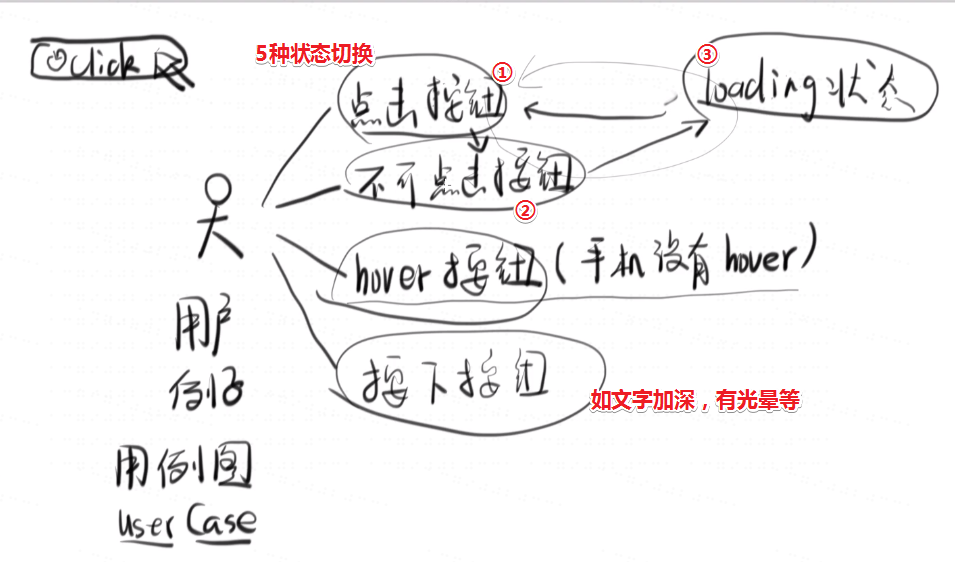 click
5种状态切换
① 点击按钮
③ loading状态
不可点击按钮
②
hover按钮(手机没有hover)
用户
例子
按下按钮
如文字加深，有光晕等
用例图
user Case